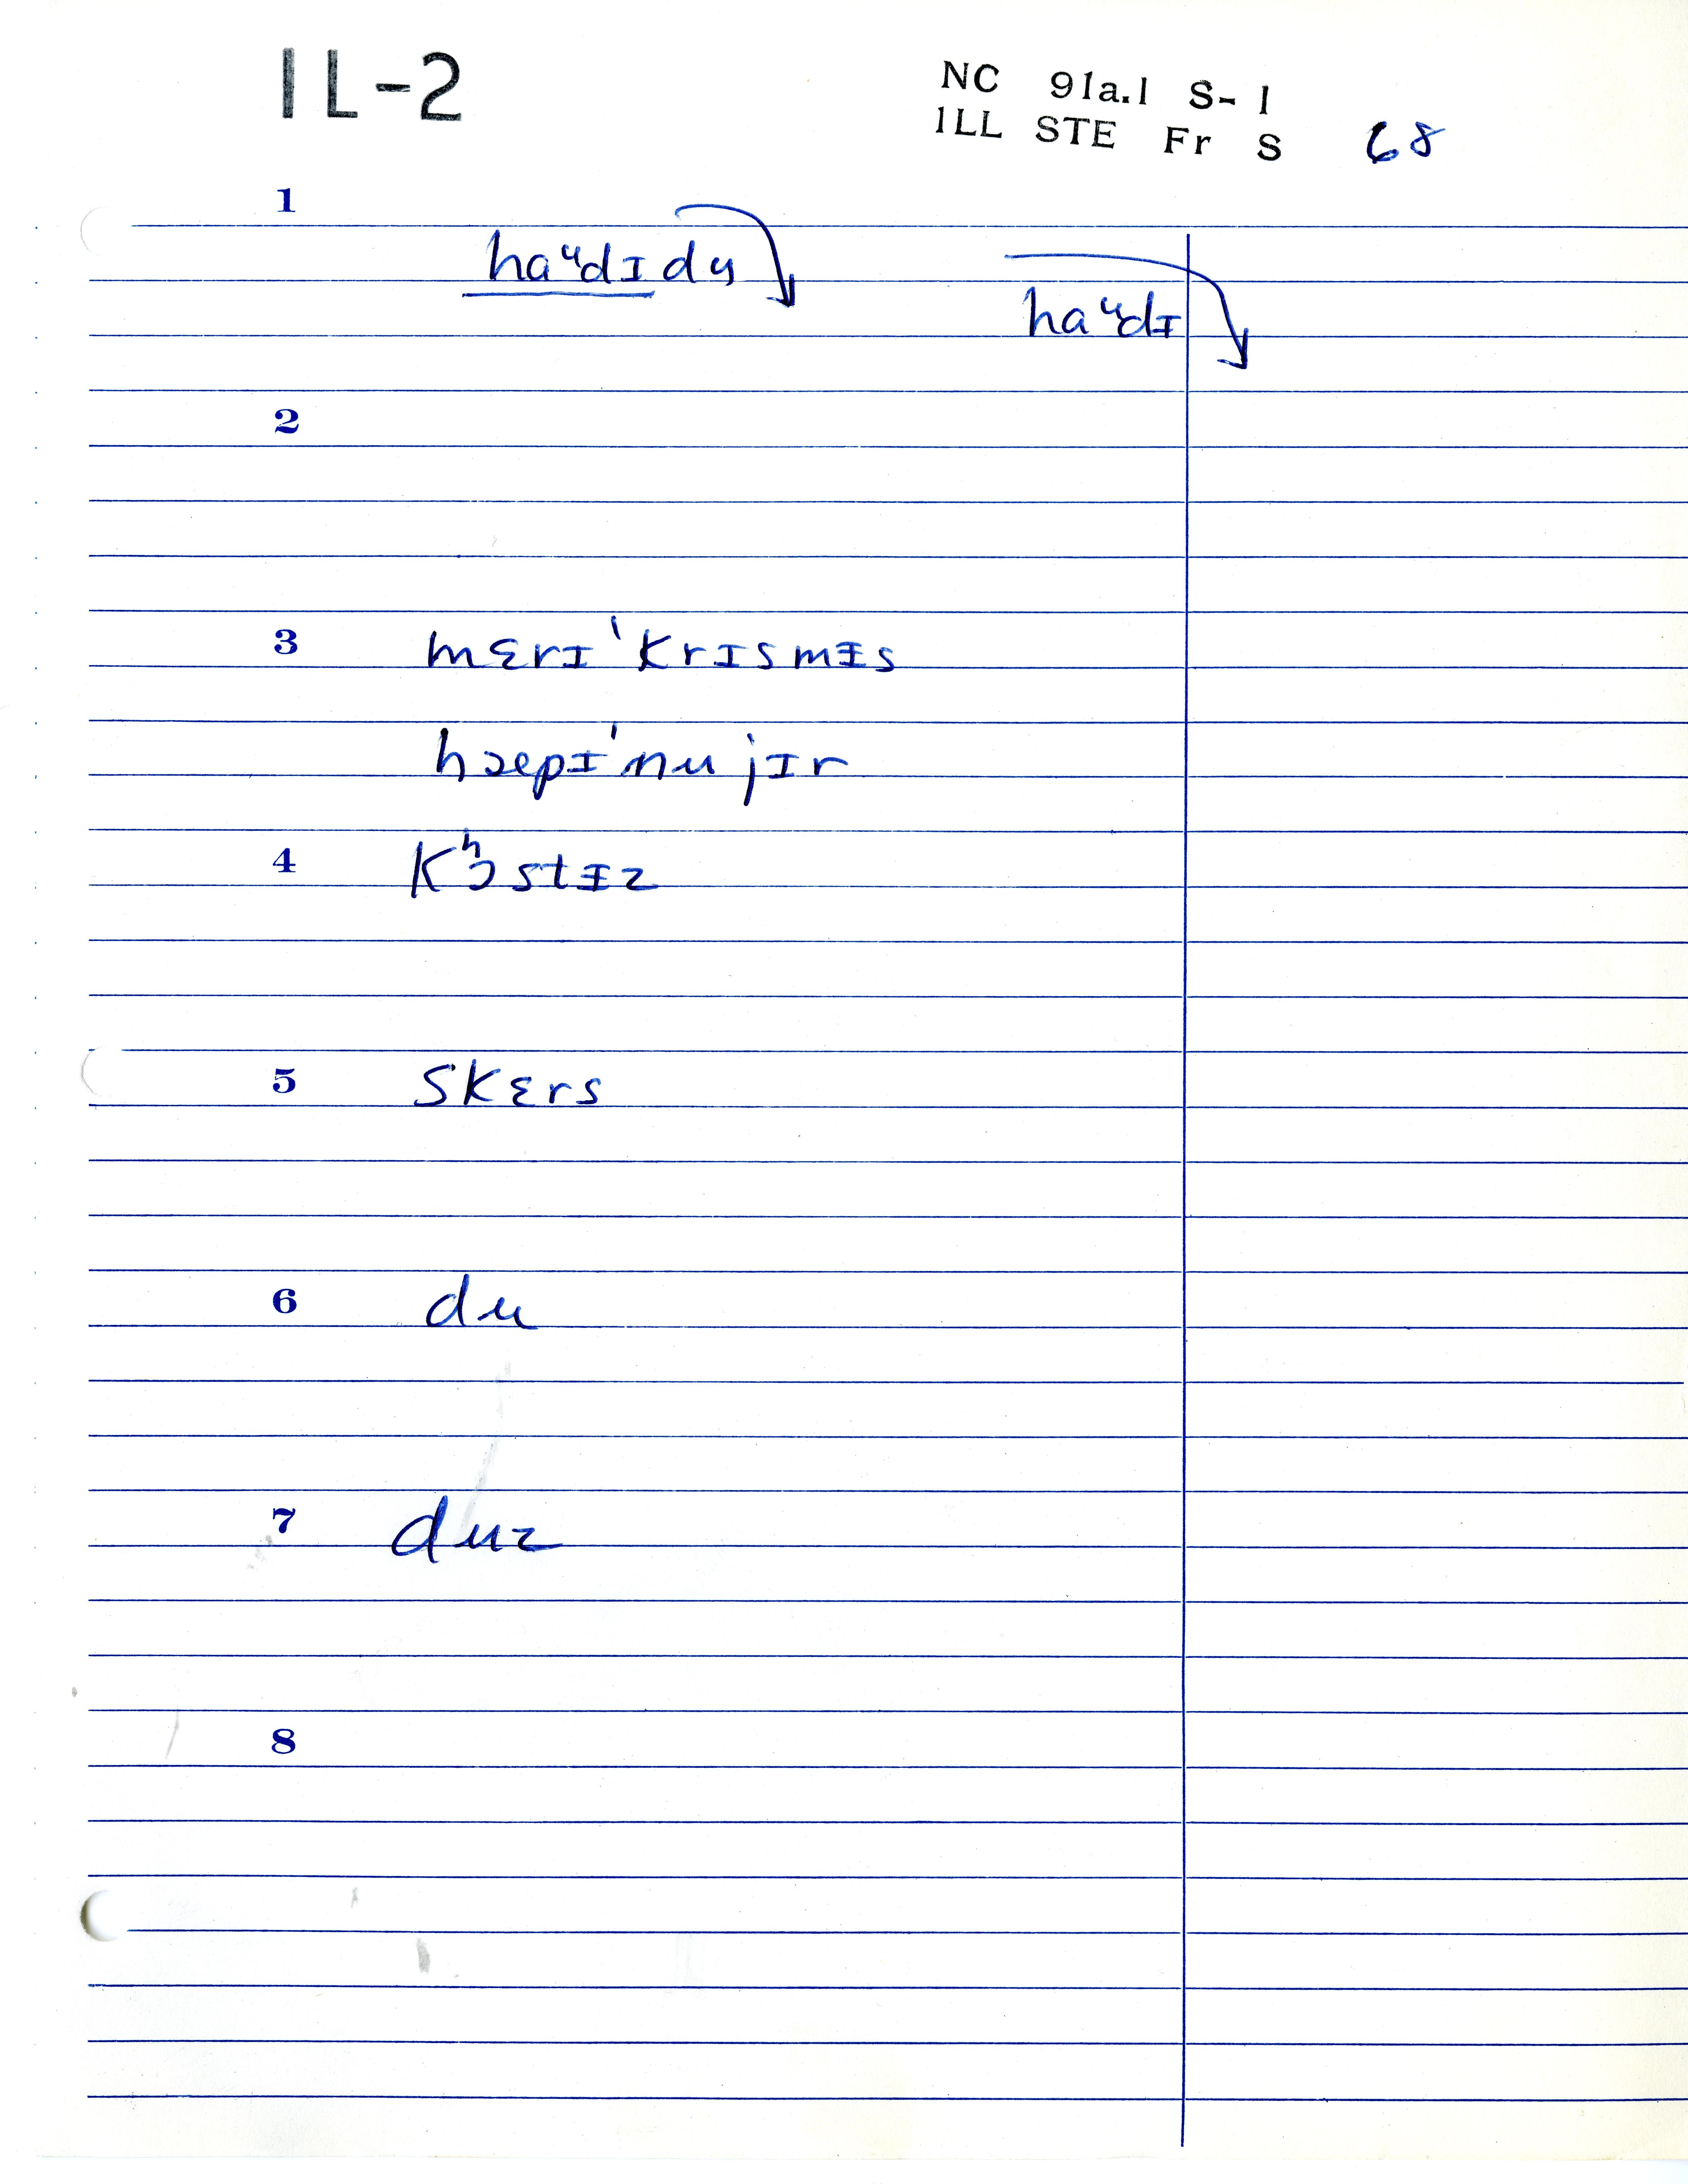 IL-2
NC 91a.1 S-1
ILL STE Fr S 68
1
haᶣdɪ dy
haᶣdɪ
2
3 mɛrɪ ˈkrɪsmɪs
hæpɪ ˈnu jɪr
4 kʰɔstɪz
5 skɛrs
6 du
7 duz
8